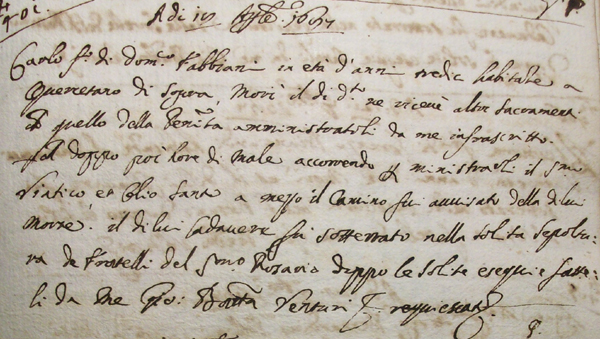 A di
Carlo f: di Dom:co Fabbiani in età d'anni tredic habitante a
Querretano di sopra, Morì il di d:to ne ricevè altri Sacramenti
quello della Penit:a amministratoli da me infrascritto.
doppo poi hora di male accorrendo ministrarli il S:mo
Viatico, et Olio Santo a mezzo il Camino fui avvisato della di lui
morte, il di lui Cadavere fù sotterrato nella solita Sepoltu-
ra de Fratelli del S:mo Rosario doppo le solite esequie fatte-
li da me Gio: Batta Venturi requiescat